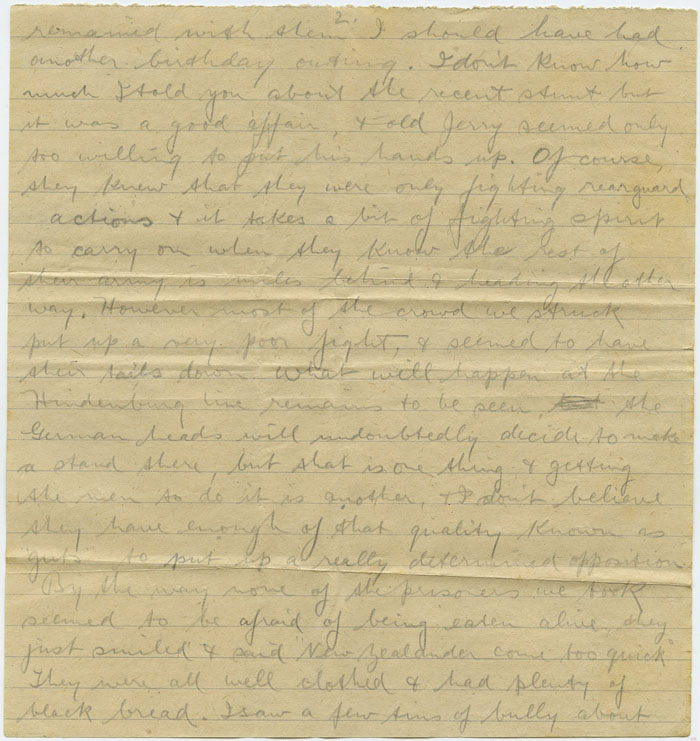 2.
remained with them I should have had
another birthday outing. I don't know how
much I told you about the recent stunt but
it was a good affair, & old Jerry seemed only
too willing to put his hands up. Of course
they knew that they were only fighting rearguard
actions & it takes a bit of fighting spirit
to carry on when they know the rest of
their army is miles behind & heading the other
way. However most of the crowd we struck
put up a very poor fight, & seemed to have
their tails down. What will happen at the
Hindenburg line remains to be seen, the
German heads will undoubtedly decide to make
a stand there, but that is one thing & getting
the men to do it is another, & I don't believe
they have enough of that quality known as
"guts" to put up a really determined opposition
By the way none of the prisoners we took
seemed to be afraid of being eaten alive, they
just smiled & said "New Zealander come too quick"
They were all well clothed & had plenty of
black bread. I saw a few tins of bully about